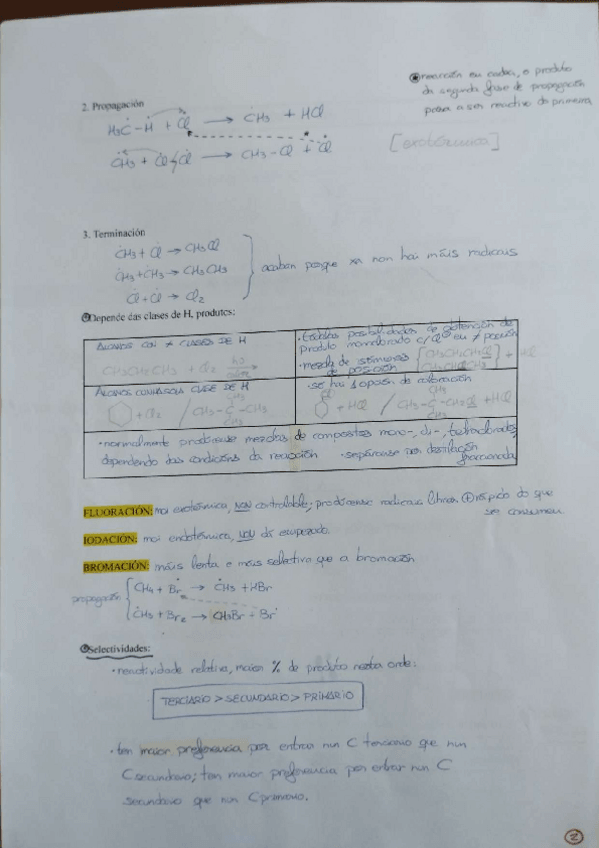 ⊛ reacción en cadea, o produto
da segunda fase de propagación
pasa a ser reactivo da primeira.
2. Propagación
H₃C–H + Cl → CH₃ + HCl
[exotérmica]
CH₃ + Cl Cl → CH₃–Cl + Cl
3. Terminación
CH₃ + Cl → CH₃Cl
CH₃ + CH₃ → CH₃CH₃
acaban porque xa non hai máis radicais
Cl + Cl → Cl₂
Depende das clases de H, produtos:
ALCANOS CON ≠ CLASES DE H
CH₃CH₂CH₃ + Cl₂
posibilidades de obtención de
produto monoclorado c/ Cl en ≠ posición
• mezcla de isómeros
de posición
+ HCl
ALCANOS CUNHA SOLA CLASE DE H
+ Cl₂ / CH₃–C–CH₃
CH₃
CH₃
• se hai 1 opción de cloración
Cl
+ HCl / CH₃–C–CH₂Cl + HCl
CH₃
CH₃
• normalmente prodúcense mezclas de compostos mono-, di-, tetraclorados,
dependendo das condicións da reacción • sepáranse por destilación
fraccionada
FLUORACIÓN: moi exotérmica, NON controlable; prodúcense radicais libres ⊕ rápido do que
se consumen.
IODACIÓN: moi endotérmica, NON
BROMACIÓN: máis lenta e máis selectiva que a bromación
propagación
CH₄ + Br → CH₃ + HBr
CH₃ + Br₂ → CH₃Br + Br
Selectividades:
• reactividade relativa, maior % de produto nesta orde:
TERCIARIO > SECUNDARIO > PRIMARIO
• ten maior preferencia por entrar nun C terciario que nun
C secundario; ten maior preferencia por entrar nun C
secundario que nun C primario.
2